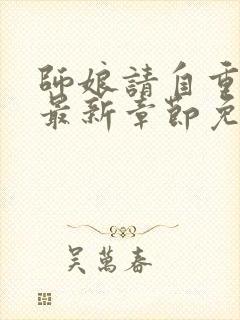 師娘請自重
最新章節免
吳萬春